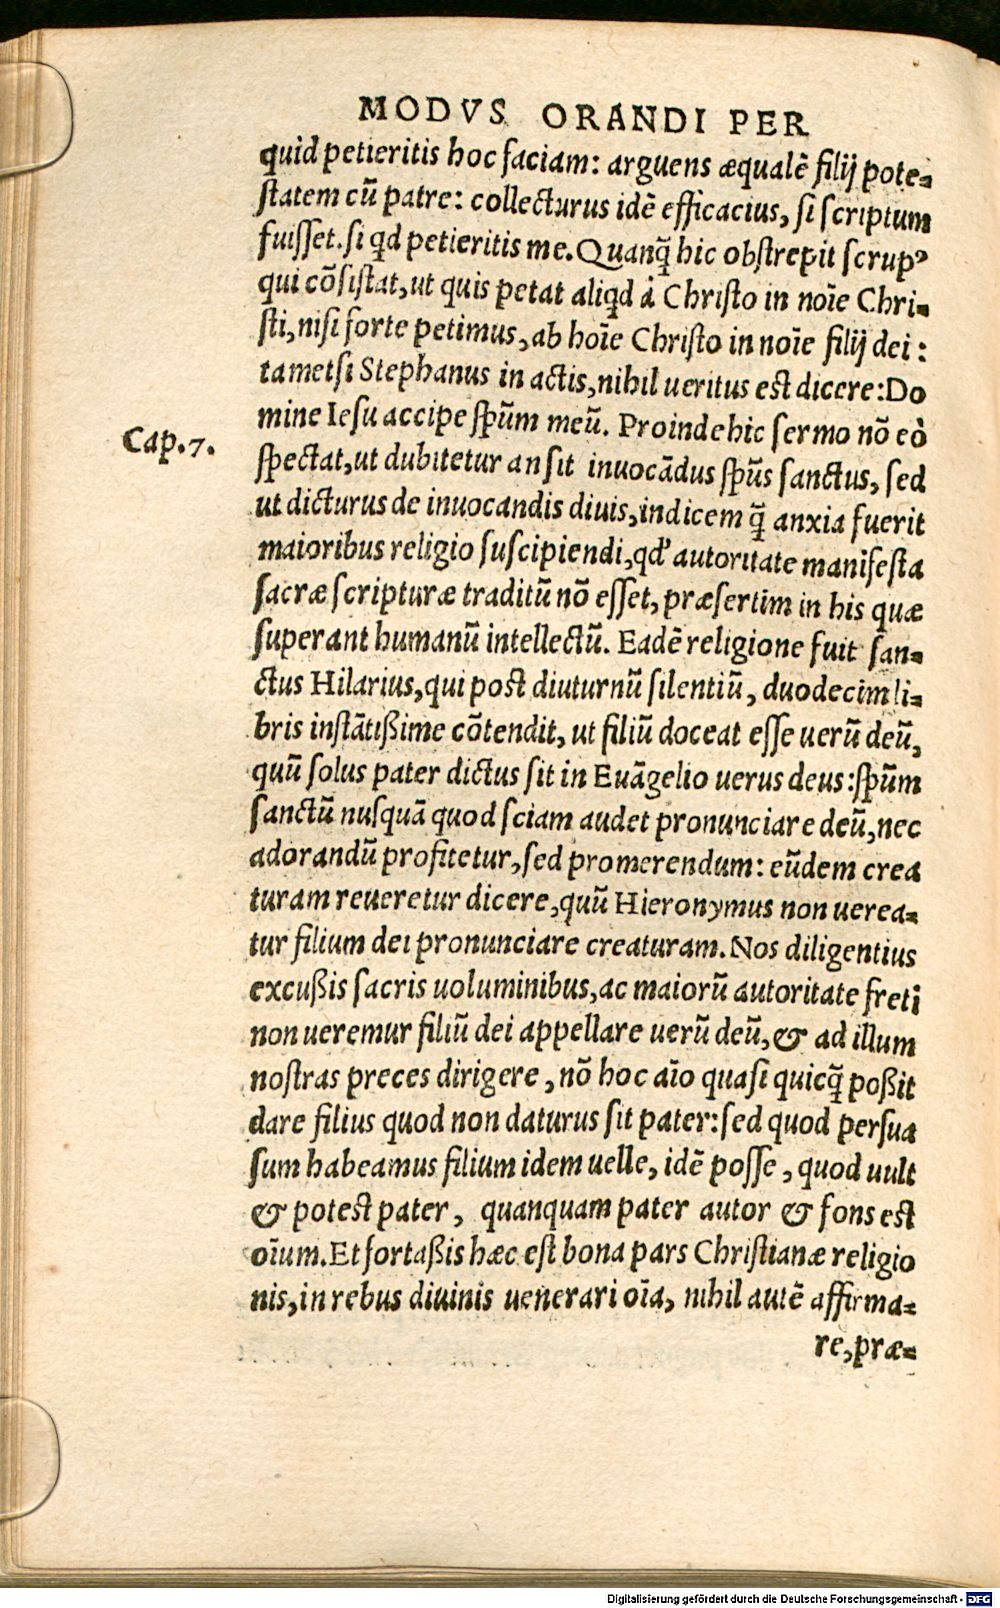 MODVS ORANDI PER
quid petieritis hoc faciam: arguens æqualẽ filij pote-
ſtatem cũ patre: collecturus idẽ efficacius, ſi ſcriptum
fuiſſet. ſi qd petieritis me. Quanq̃ hic obſtrepit ſcrupꝰ
qui cõſiſtat, ut quis petat aliqd à Chriſto in noĩe Chri-
ſti, niſi forte petimus, ab hoĩe Chriſto in noĩe filij dei:
tametſi Stephanus in actis, nihil ueritus eſt dicere: Do
mine Ieſu accipe ſpũm meũ. Proinde hic ſermo nõ eò
Cap. 7.
ſpectat, ut dubitetur an ſit inuocãdus ſpũs ſanctus, ſed
ut dicturus de inuocandis diuis, indicem q̃ anxia fuerit
maioribus religio ſuſcipiendi, qd' autoritate manifeſta
ſacræ ſcripturæ traditũ nõ eſſet, præſertim in his quæ
ſuperant humanũ intellectũ. Eadẽ religione fuit ſan-
ctus Hilarius, qui poſt diuturnũ ſilentiũ, duodecim li-
bris inſtãtißime cõtendit, ut filiũ doceat eſſe uerũ deũ,
quũ ſolus pater dictus ſit in Euãgelio uerus deus: ſpũm
ſanctũ nuſquã quod ſciam audet pronunciare deũ, nec
adorandũ profitetur, ſed promerendum: eũdem crea
turam reueretur dicere, quũ Hieronymus non uerea-
tur filium dei pronunciare creaturam. Nos diligentius
excußis ſacris uoluminibus, ac maiorũ autoritate freti
non ueremur filiũ dei appellare uerũ deũ, & ad illum
noſtras preces dirigere, nõ hoc aĩo quaſi quicq̃ poßit
dare filius quod non daturus ſit pater: ſed quod perſua
ſum habeamus filium idem uelle, idẽ poſſe, quod uult
& poteſt pater, quanquam pater autor & fons eſt
oĩum. Et fortaßis hæc eſt bona pars Chriſtianæ religio
nis, in rebus diuinis uenerari oĩa, nihil autẽ affirma-
re, præ-
Digitalisierung gefördert durch die Deutsche Forschungsgemeinschaft - DFG